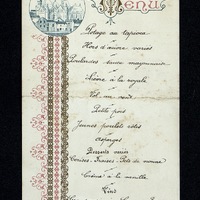 Menu
Potage au tapioca
Hors d'œuvre variés
Poulardes
Lièvre à la royale
Vol au vent
Petits pois
Jeunes poulets rôtis
Asperges
Desserts variés
Cerises - Fraises -
Crème à la vanille
Vins